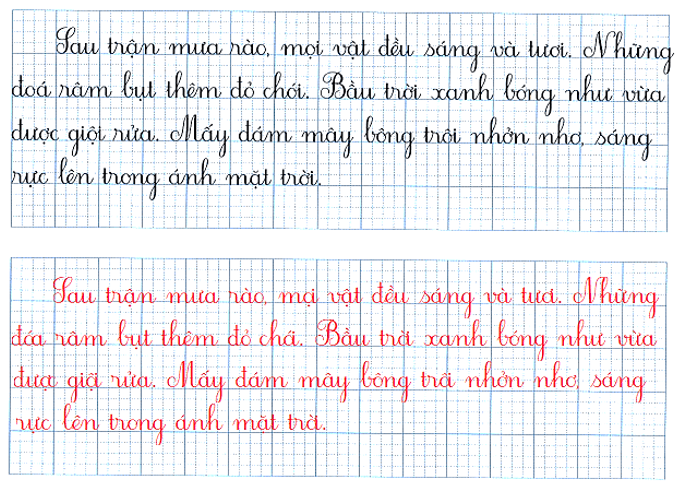 Sau trận mưa rào, mọi vật đều sáng và tươi. Những
đoá râm bụt thêm đỏ chói. Bầu trời xanh bóng như vừa
được giội rửa. Mấy đám mây bông trôi nhởn nhơ, sáng
rực lên trong ánh mặt trời.
Sau trận mưa rào, mọi vật đều sáng và tươi. Những
đóa râm bụt thêm đỏ chói. Bầu trời xanh bóng như vừa
được giội rửa. Mấy đám mây bông trôi nhởn nhơ, sáng
rực lên trong ánh mặt trời.